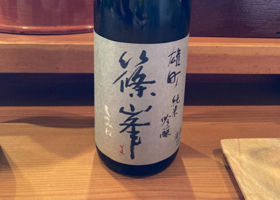 雄町
純米
吟醸
篠峯